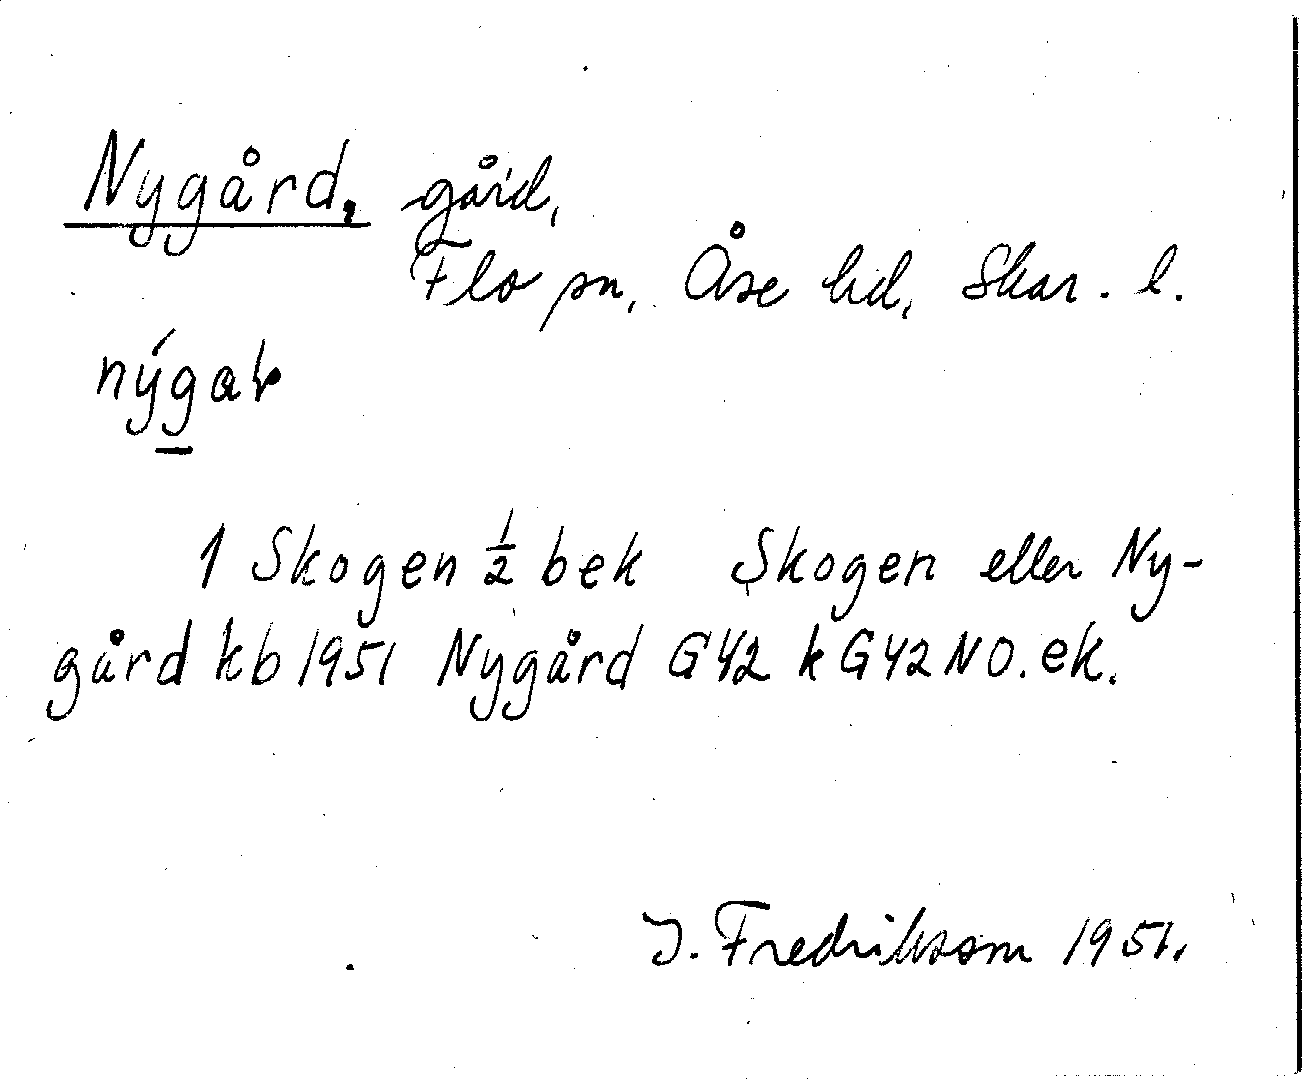 Nygård, gård,
Flo sn, Åse hd, Skar. l.
nýgaṙ
1 Skogen ½ bek Skogen eller Ny-
gård kb 1951 Nygård G42 k G42 NO. ek.
J. Fredriksson 1951.